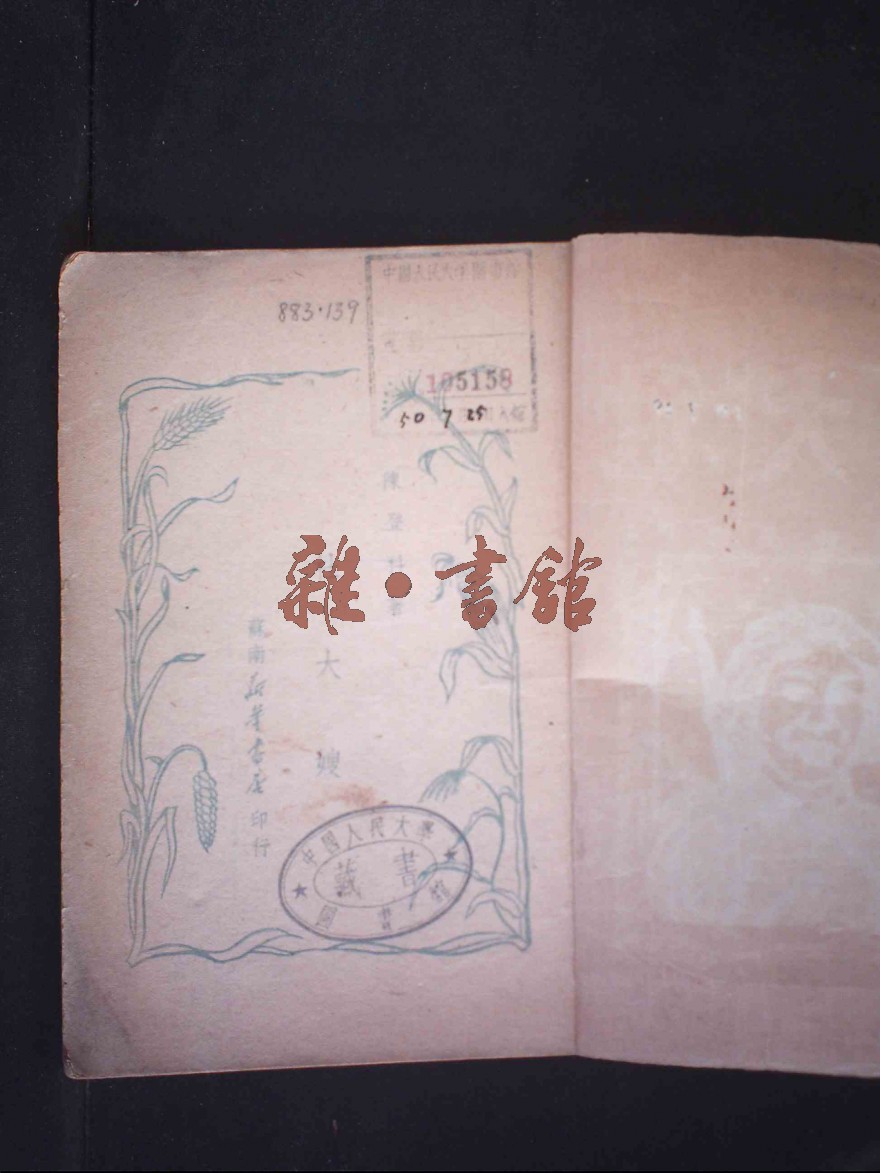 883·139
中國人民大學圖書館
登錄
195159
50 7 25
陳登科著
大嫂
蘇南新華書店印行
中國人民大學
藏書
圖書館
雜·書館